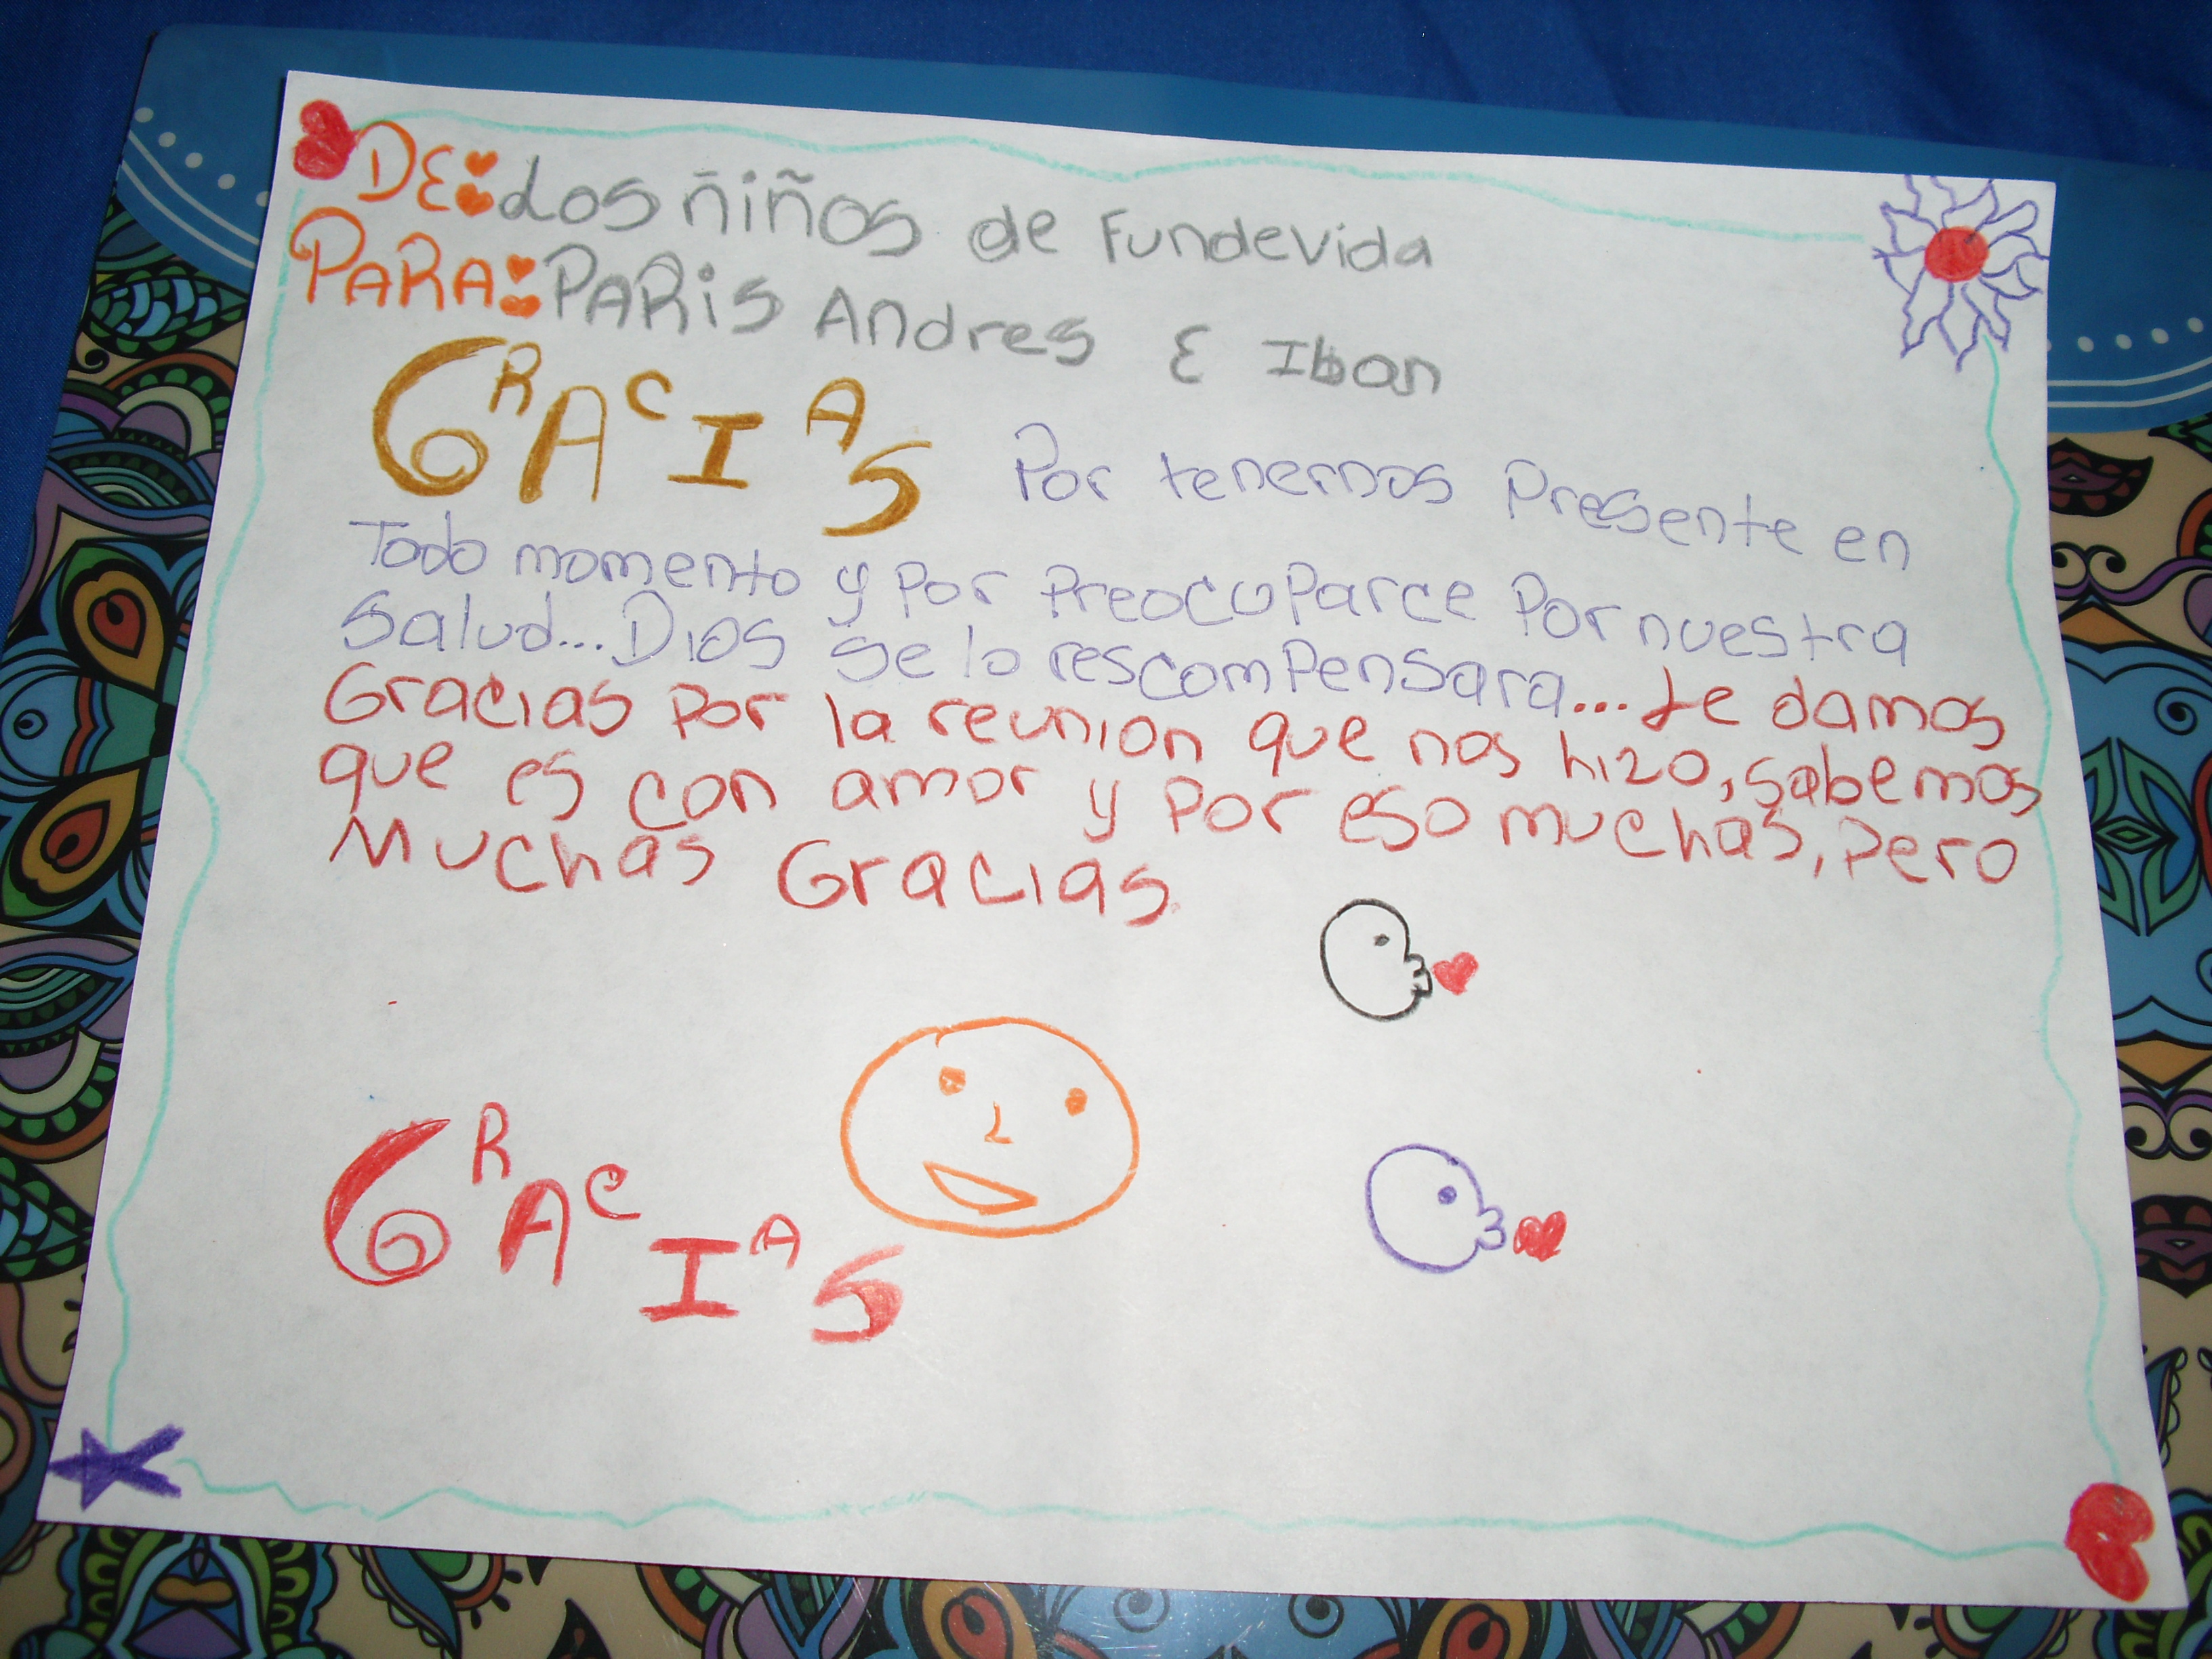 DE: Los ñiños de Fundevida
PARA: PARis Andres E Iban
GRACIAS Por tenernos Presente en
Todo momento y Por PreocuParce Por nuestra
Salud... Dios se lo rescomPensara... te damos
Gracias Por la reunion que nos hizo, sabemos
que es con amor y Por eso muchas, Pero
Muchas Gracias
GRACIAS